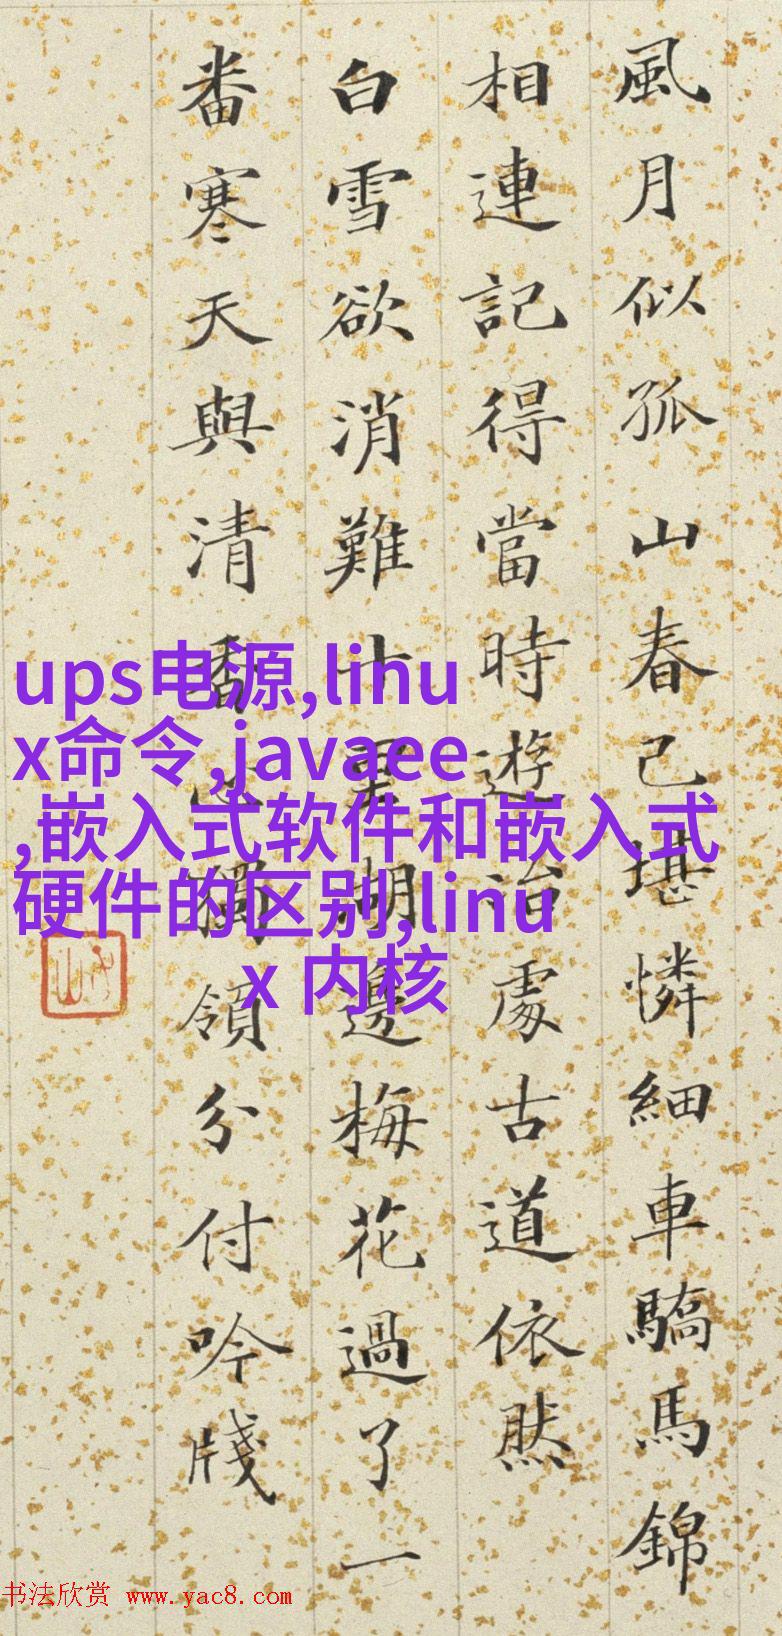 風月似孤山春已堪憐細車驕馬錦
相連記得當時遊冶處古道依然
白雪欲消難十里湖邊梅花過了一
番寒天與清香心獨領分付吟牋
ups电源,linu
x命令,javaee
,嵌入式软件和嵌入式
硬件的区别,linu
x 内核
书法欣赏 www.yac8.com